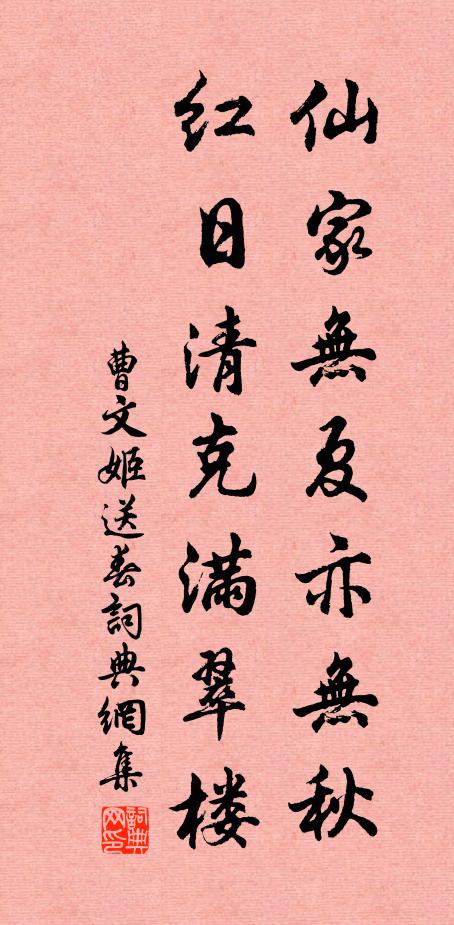 仙家無夏亦無秋
红日清克满翠楼
曹文姬送春詞典網集
詞典网印